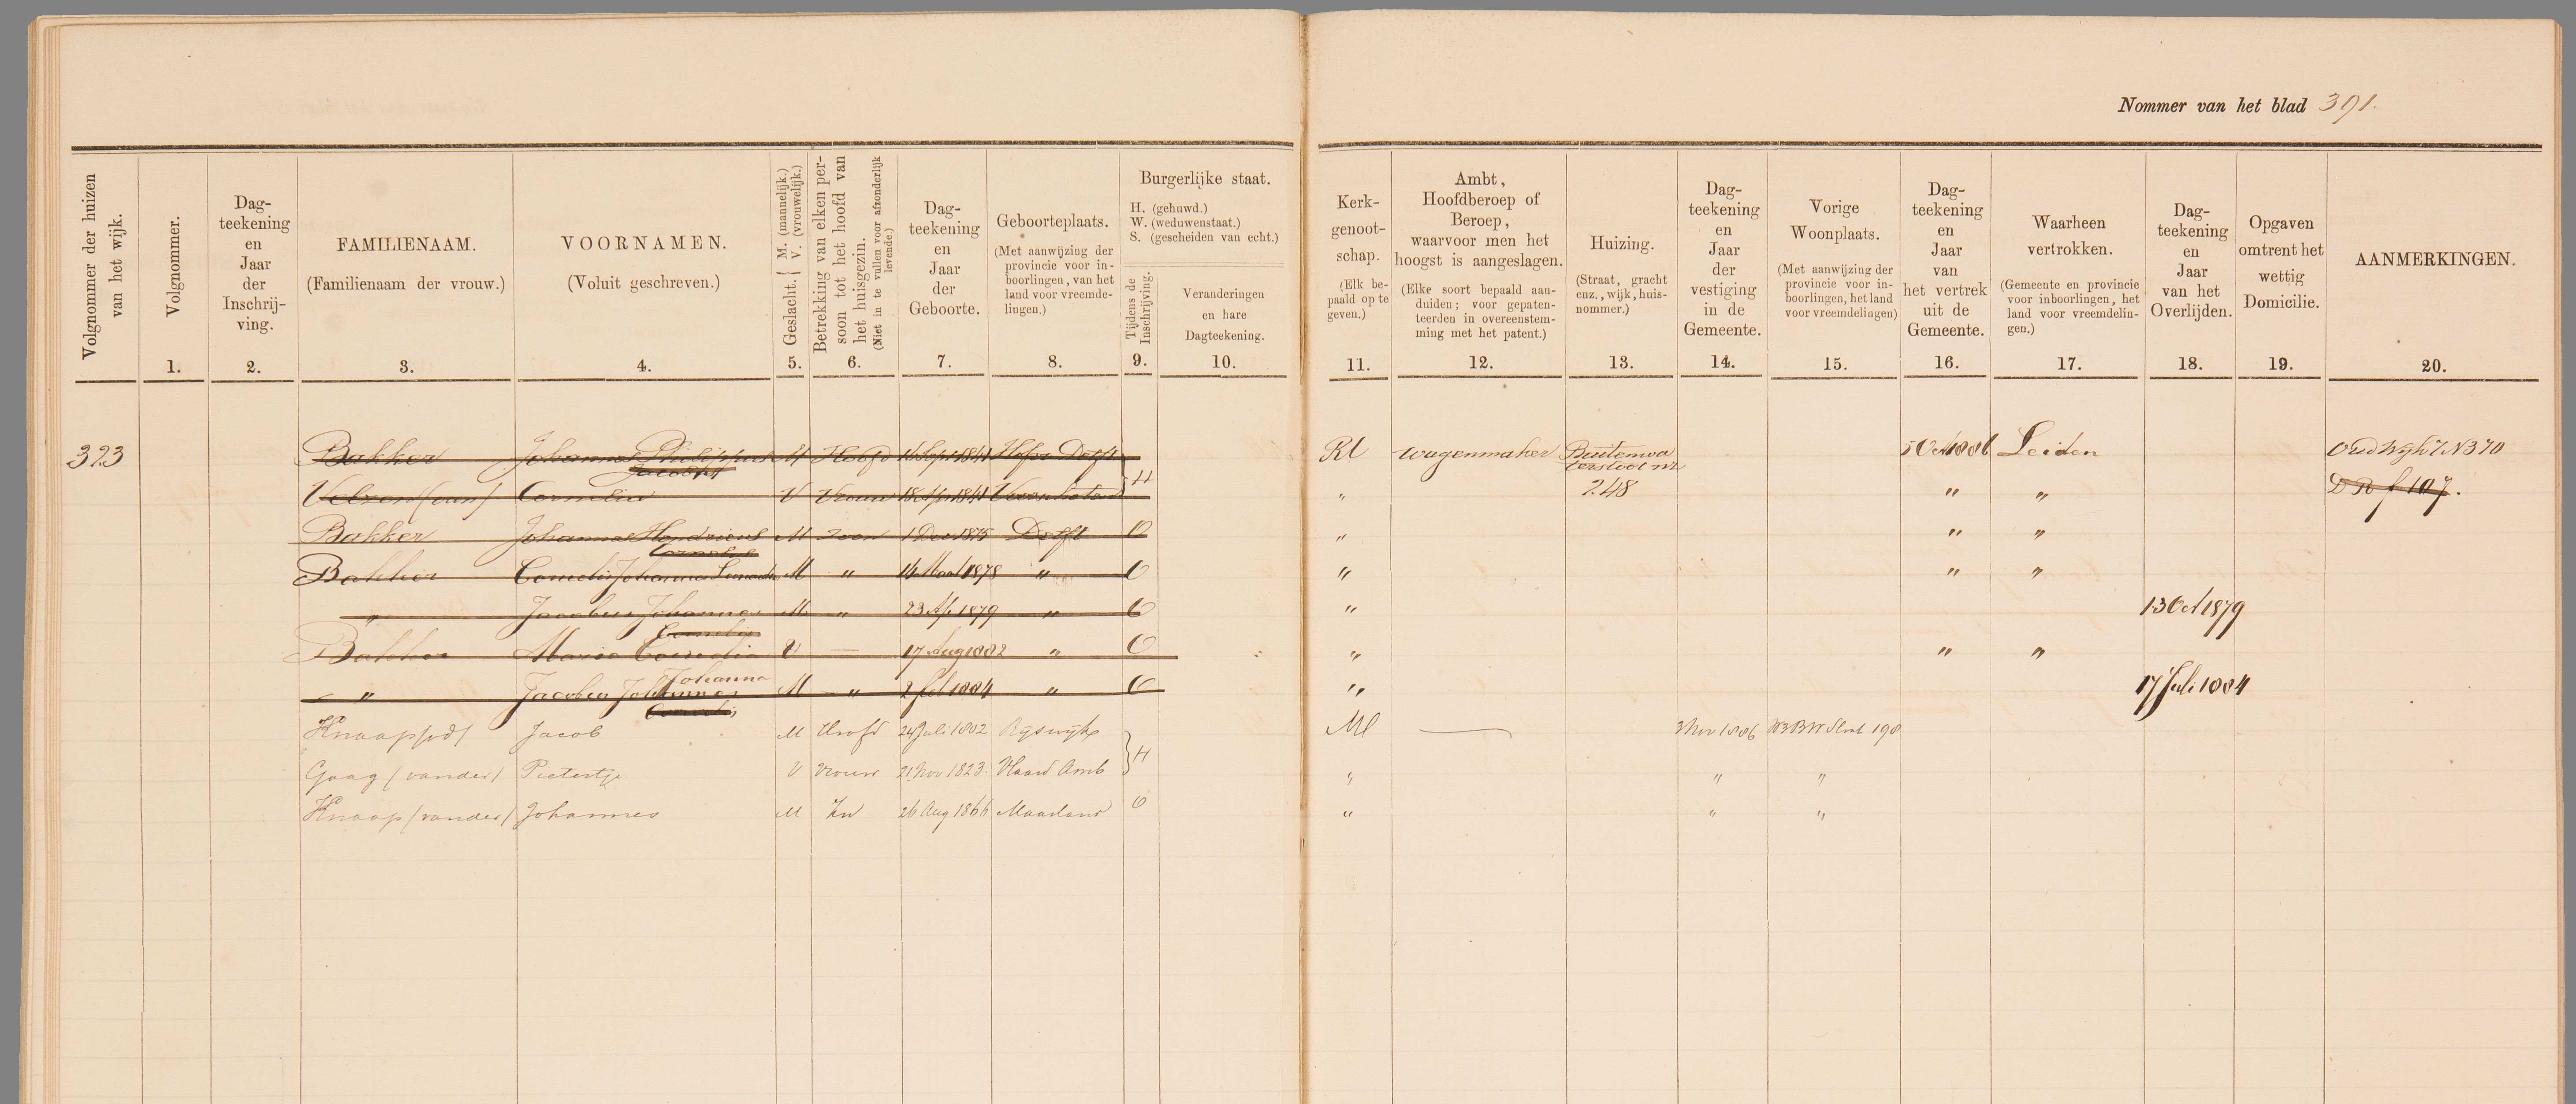 Nommer van het blad 391.
Volgnommer der huizen van het wijk.
Volgnommer.
1.
Dag-
teekening
en
Jaar
der
Inschrij-
ving.
2.
FAMILIENAAM.
(Familienaam der vrouw.)
3.
VOORNAMEN.
(Voluit geschreven.)
4.
Geslacht. { M. (mannelijk.) V. (vrouwelijk.)
5.
Betrekking van elken per-
soon tot het hoofd van
het huisgezin.
(Niet in te vullen voor afzonderlijk
levende.)
6.
Dag-
teekening
en
Jaar
der
Geboorte.
7.
Geboorteplaats.
(Met aanwijzing der
provincie voor in-
boorlingen, van het
land voor vreemde-
lingen.)
8.
Burgerlijke staat.
H. (gehuwd.)
W. (weduwenstaat.)
S. (gescheiden van echt.)
Tijdens de
Inschrijving.
9.
Veranderingen
en hare
Dagteekening.
10.
Kerk-
genoot-
schap.
(Elk be-
paald op te
geven.)
11.
Ambt,
Hoofdberoep of
Beroep,
waarvoor men het
hoogst is aangeslagen.
(Elke soort bepaald aan-
duiden; voor gepaten-
teerden in overeenstem-
ming met het patent.)
12.
Huizing.
(Straat, gracht
enz., wijk, huis-
nommer.)
13.
Dag-
teekening
en
Jaar
der
vestiging
in de
Gemeente.
14.
Vorige
Woonplaats.
(Met aanwijzing der
provincie voor in-
boorlingen, het land
voor vreemdelingen)
15.
Dag-
teekening
en
Jaar
van
het vertrek
uit de
Gemeente.
16.
Waarheen
vertrokken.
(Gemeente en provincie
voor inboorlingen, het
land voor vreemdelin-
gen.)
17.
Dag-
teekening
en
Jaar
van het
Overlijden.
18.
Opgaven
omtrent het
wettig
Domicilie.
19.
AANMERKINGEN.
20.
323 Bakker Johannes Philippus M Hoofd 16 Sept 1841 Hof v Delft H RC wagenmaker 5 Oct 1886 Leiden Oud Wijk 7 N 370
Jacobus
Velzen (van) Cornelia V Vrouw 18 Apr 1841 " 248 " "
Bakker Johannes Hendricus M Zoon 1 Dec 1875 Delft O " " "
Cornelis
Bakker Cornelis Johannes M " 14 Maart 1878 " O " " "
" Jacobus Johannes M " 23 Ap 1879 " O " 13 Oct 1879
Cornelis
Bakker Maria Cornelia V 17 Aug 1882 " O " " "
Johanna
" Jacobus Johannes M " 2 Feb 1884 " O " 17 Juli 1884
Cornelis
Jacob M Hoofd 24 Juli 1802 Rijswijk H 3 Nov 1886
Gaag (vander) Pietertje V Vrouw 21 Nov 1823 Vlaard Amb " " "
Knaap (vander) Johannes M Zn 26 Aug 1866 Maasland O " " "